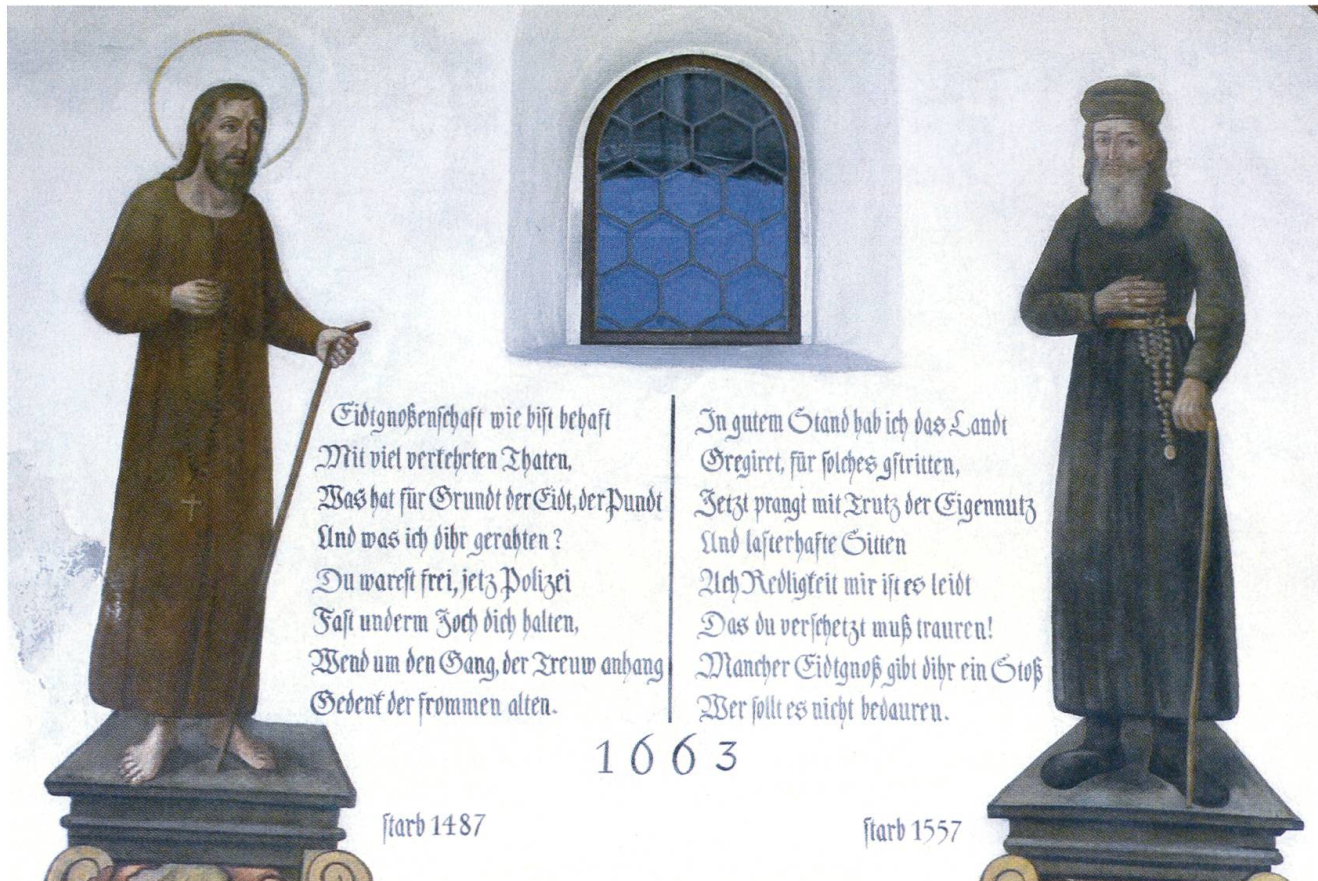 Eidtgnoßenschaft wie bist behaft
Mit viel verkehrten Thaten,
Was hat für Grundt der Eidt, der Pundt
Und was ich dihr gerahten?
Du warest frei, jetz Polizei
Fast underm Joch dich halten,
Wend um den Gang, der Treuw anhang
Gedenk der frommen alten.
In gutem Stand hab ich das Landt
Gregiret, für solches gstritten,
Jetzt prangt mit Trutz der Eigennutz
Und lasterhafte Sitten
Ach Redligkeit mir ist es leidt
Das du verschetzt muß trauren!
Mancher Eidtgnoß gibt dihr ein Stoß
Wer sollt es nicht bedauren.
1663
starb 1487
starb 1557